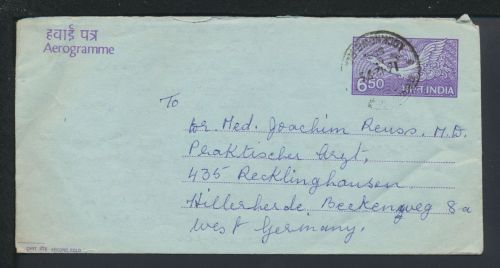 हवाई पत्र
Aerogramme
6.50
भारत INDIA
To
Dr. Med. Joachim Reuss. M.D.
Praktischer Arzt,
435 Recklinghausen
Hillerheide, Beckenweg 8a
West Germany.
SECOND FOLD